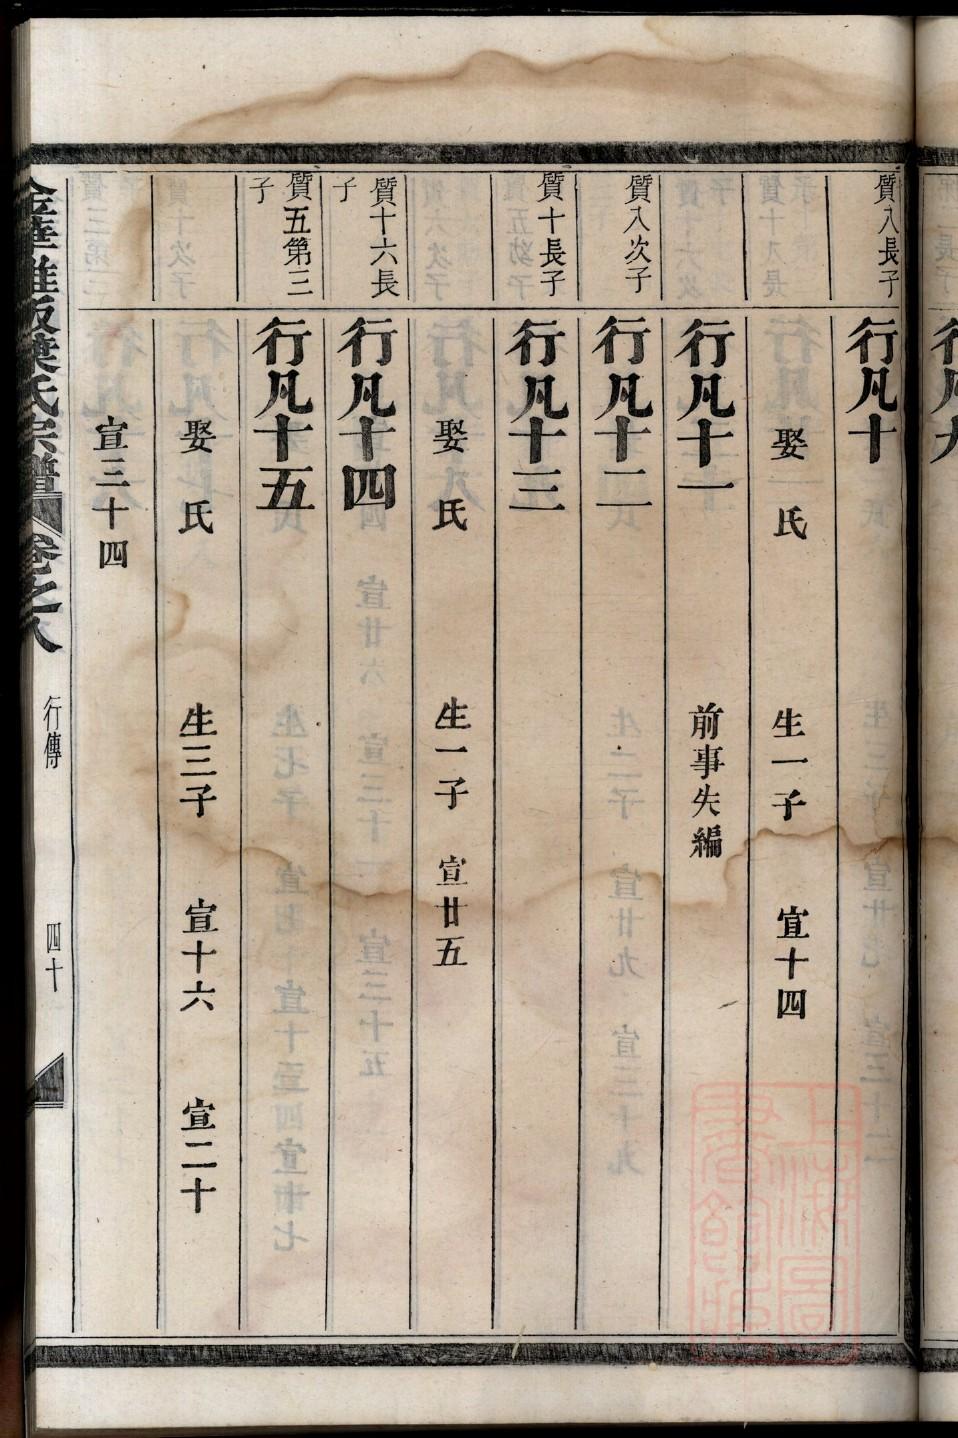 質八長子
行凡十
娶 氏 生一子 宣十四
行凡十一
前事失編
質八次子
行凡十二
質十長子
行凡十三
娶 氏 生一子 宣廿五
質十六長子
行凡十四
質五第三子
行凡十五
娶 氏 生三子 宣十六 宣二十
宣三十四
葉氏宗譜 卷之八 行傳 四十
上海圖書館藏